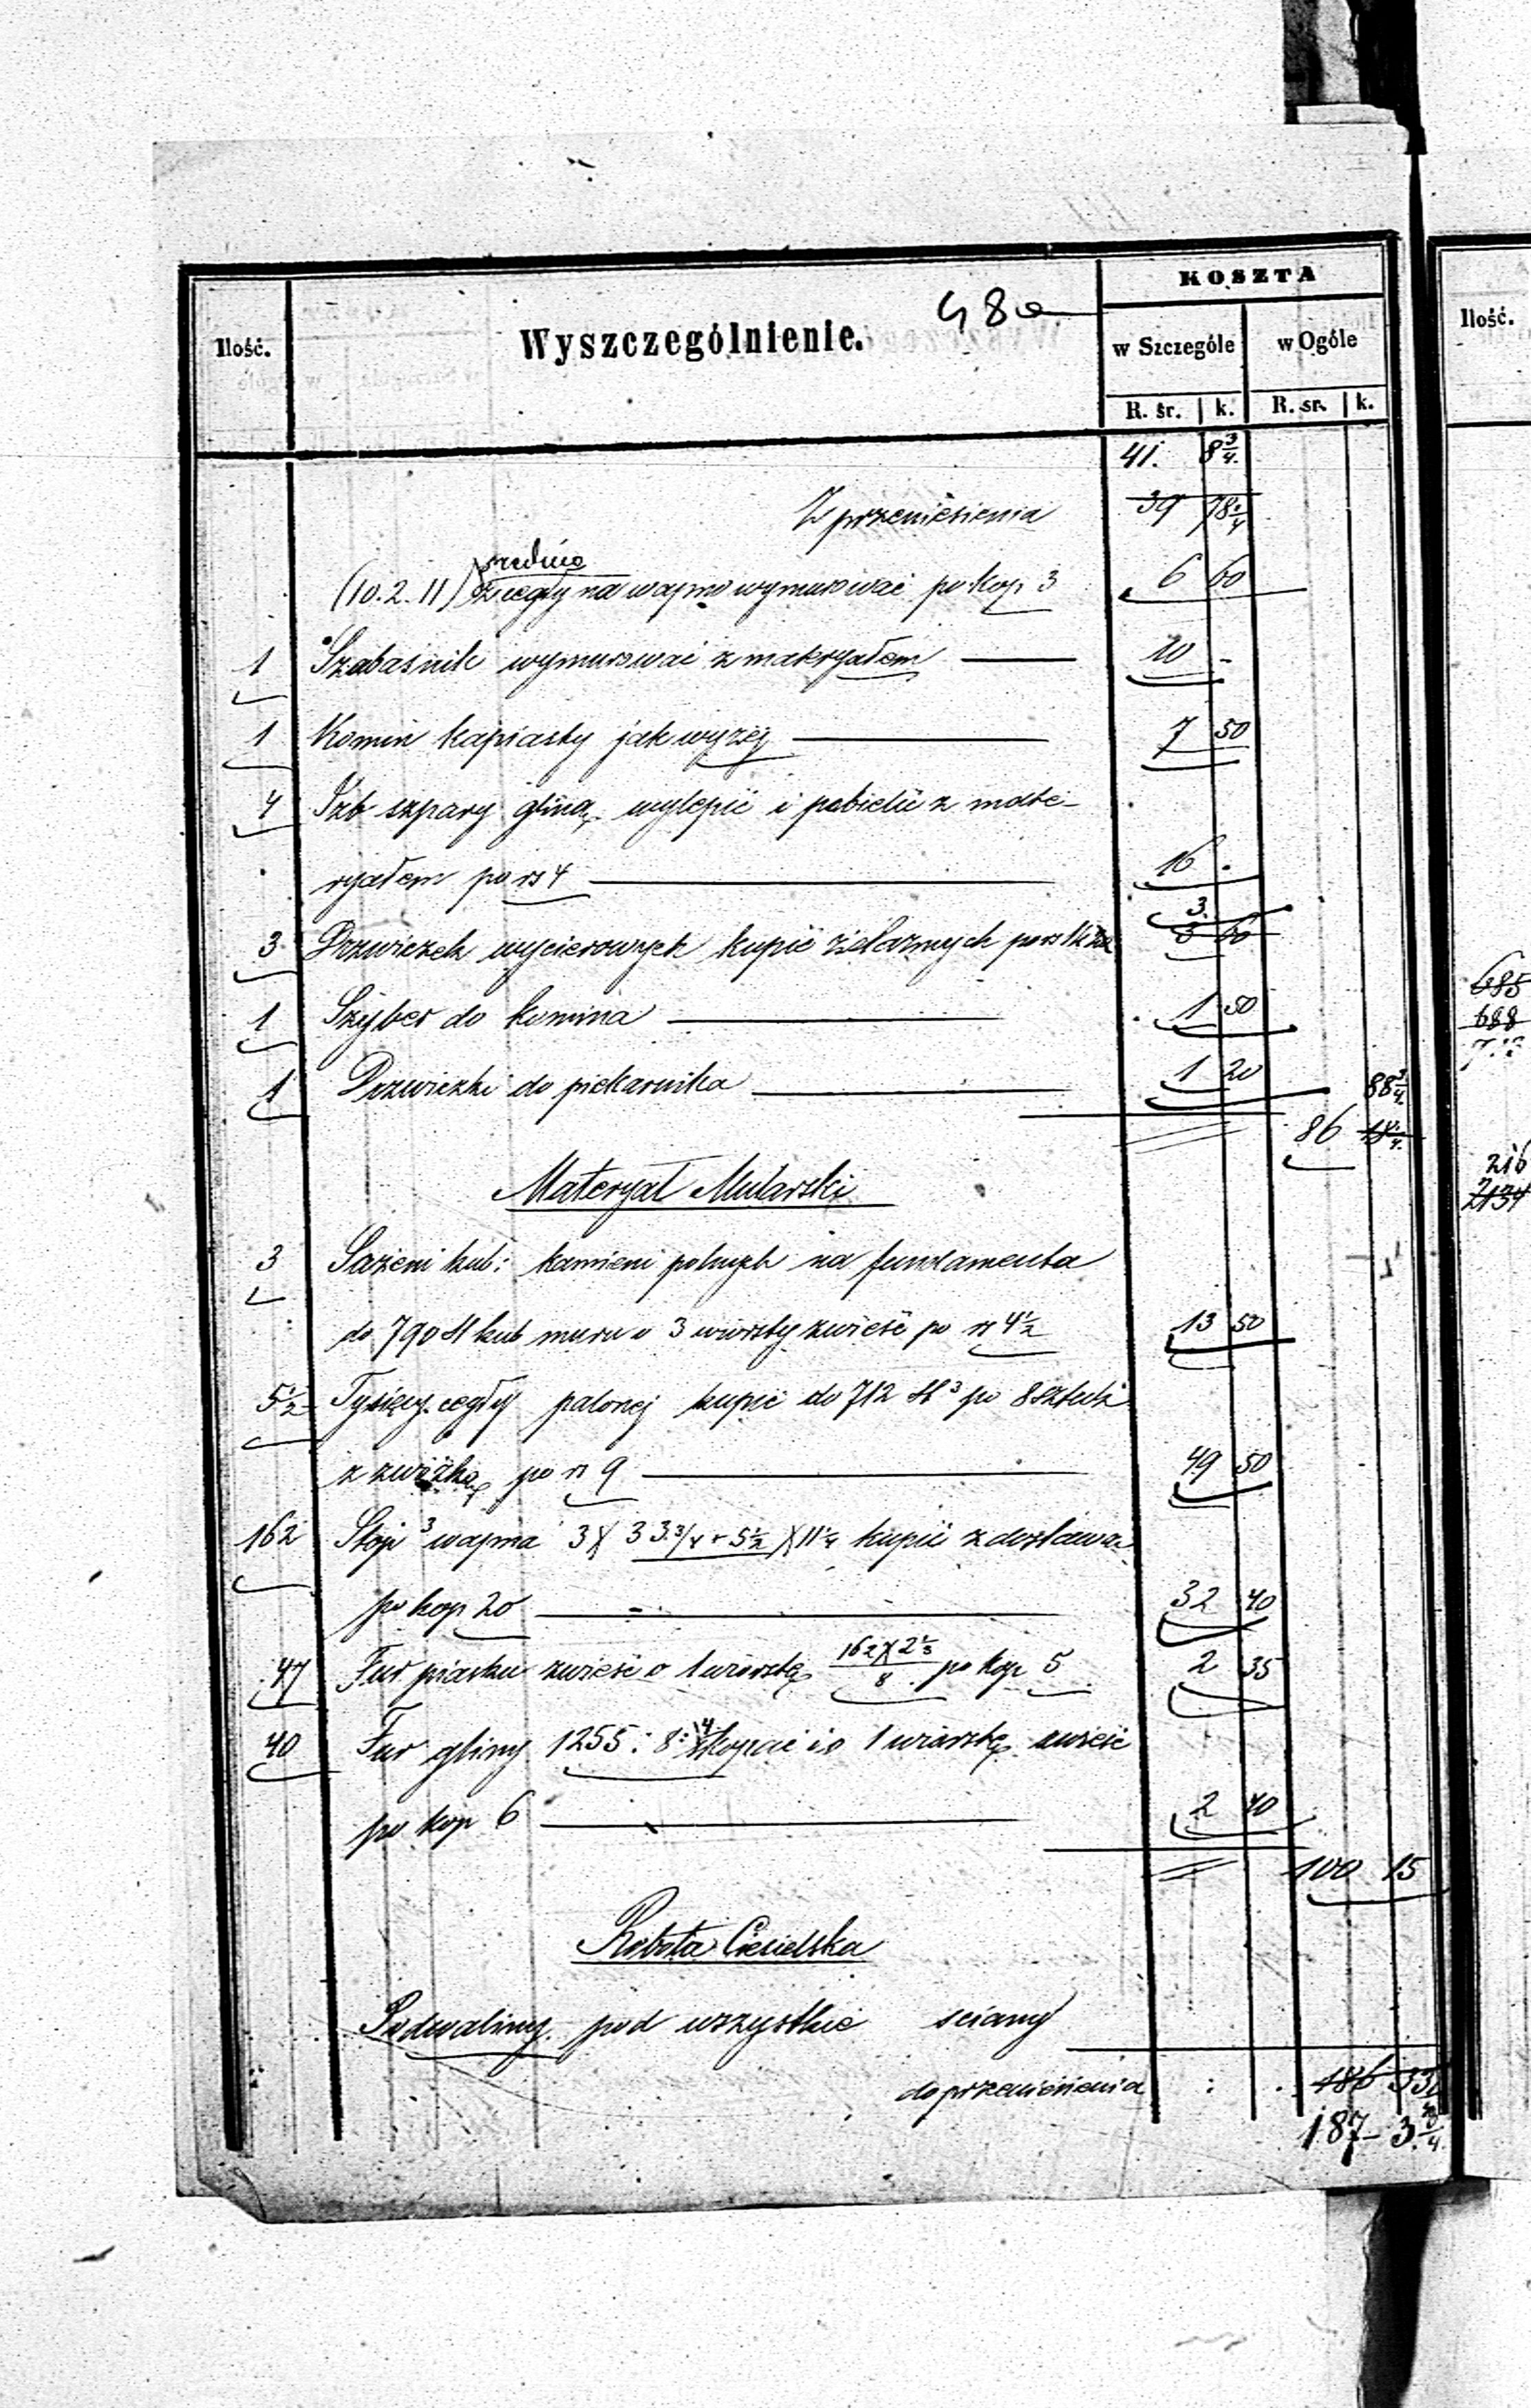 480
KOSZTA
Ilość.
Wyszczególnienie.
w Szczególe
w Ogóle
R. śr. k. R. sr. k.
41. 8 3/4
Z przeniesienia 39 78 1/4
średnio
(10.2.11) z cegły na wapno wymurować po kop 3 6 60
1 Szabaśnik wymurować z materyałem 10 -
1 Komin kapiasty jak wyżej 7 50
4 Izb szpary gliną wylepić i pobielić z mate-
ryałem po rs 4 16 .
3.
3 Drzwiczek wycierowych kupić żelaznych po rs 60
1 Szyber do komina 1 50
1 Drzwiczki do piekarnika 1 20
88 3/4
86 18 1/4
Materyał Mularski
3 Sążeni kub: kamieni polnych na fundamenta
do 790 st kub muru o 3 wiorsty zwieść po rs 4 1/2 13 50
5 1/2 Tysięcy cegły palonej kupić do 712 st 3 po 8 sztuk
z zwózką po rs 9 49 50
162 Stóp 3 wapna 3 X 33 3/4 + 5 1/2 X 11 1/4 kupić z dostawą
po kop 20 32 40
47 Fur piasku zwieść o 1 wiorstę 162 X 2 1/3 / 8 po kop 5 2 35
40 Fur gliny 1255 : 8 : 14 kopać i o 1 wiorstę zwieść
po kop 6 2 40
100 15
Robota Ciesielska
Podwaliny pod wszystkie ściany
do przeniesienia 186 33
187 - 3 3/4
Ilość.
685
688
216
2134